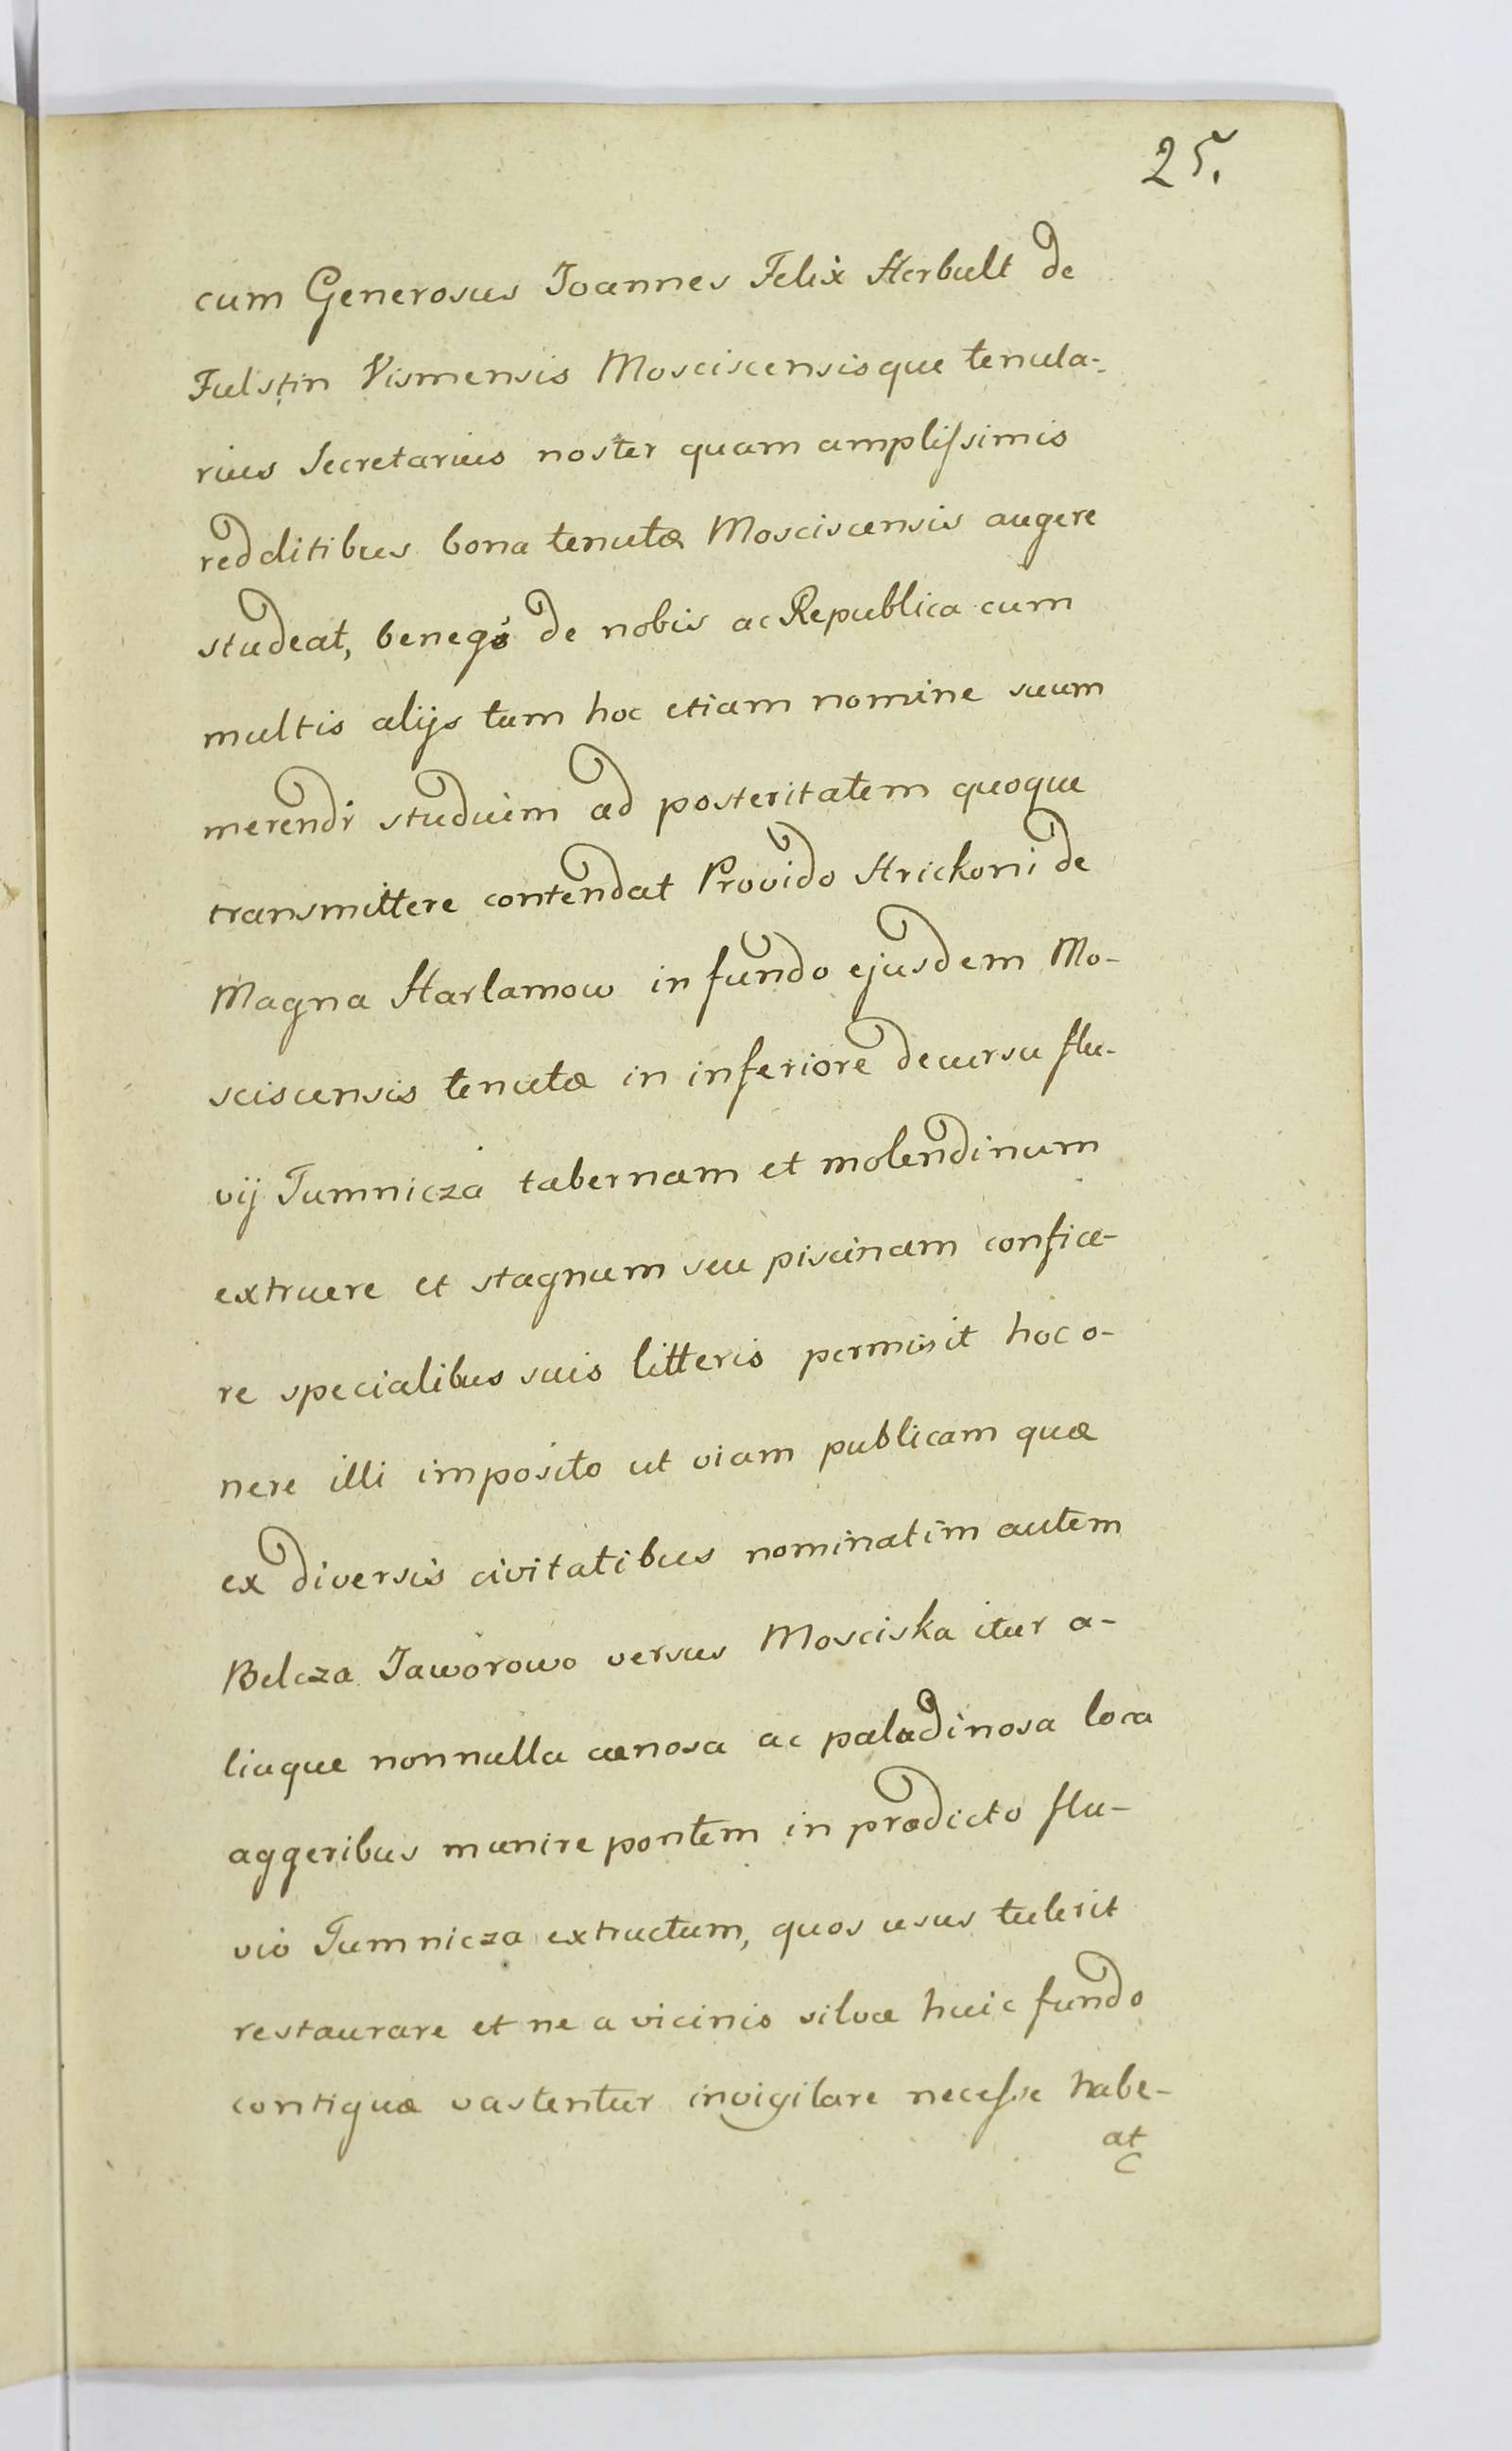 25.
cum Generosus Joannes Felix Herbult de
Fulstin Vismensis Mosciscensisque tenuta-
rius Secretarius noster quam amplissimis
redditibus bona tenutæ Mosciscensis augere
studeat, beneqȝ de nobis ac Republica cum
multis alijs tum hoc etiam nomine suum
merendi studium ad posteritatem quoque
transmittere contendat Provido Hrickoni de
Magna Harlamow in fundo ejusdem Mo-
sciscensis tenutæ in inferiore decursu flu-
vij Tumnicza tabernam et molendinum
extruere et stagnum seu piscinam confice-
re specialibus suis litteris permisit hoc o-
nere illi imposito ut viam publicam quæ
ex diversis civitatibus nominatim autem
Belcza Jaworowo versus Mosciska itur a-
liaque nonnulla cænosa ac paludinosa loca
aggeribus munire pontem in prædicto flu-
vio Tumnicza extructum, quos usus tulerit
restaurare et ne a vicinis silvæ huic fundo
contiguæ vastentur invigilare necesse habe-
at